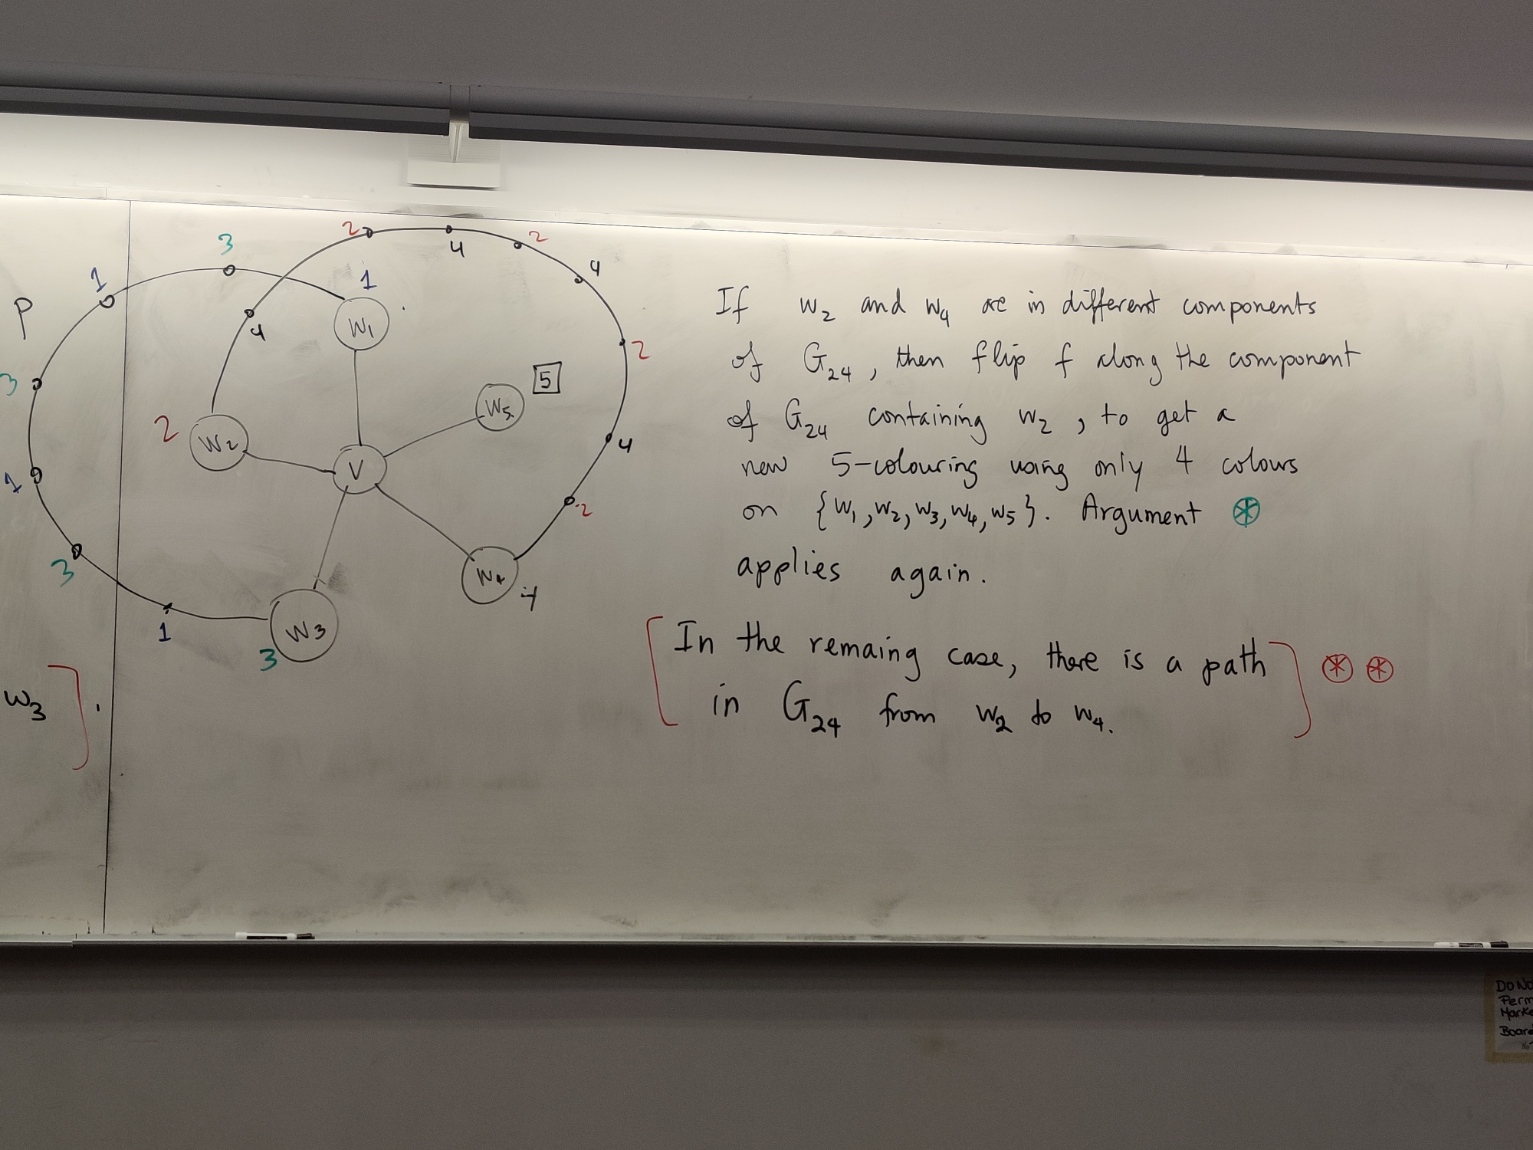 P
1
3
3
1
3
1
w3
2
4
2
4
4
2
4
2
1
W1
2
W2
V
W5
5
W4
4
W3
3
If w2 and w4 are in different components
of G24, then flip f along the component
of G24 containing w2, to get a
new 5-colouring using only 4 colours
on {w1, w2, w3, w4, w5}. Argument ⊛
applies again.
[In the remaing case, there is a path
in G24 from w2 to w4.] ⊛ ⊛
Perm
Board